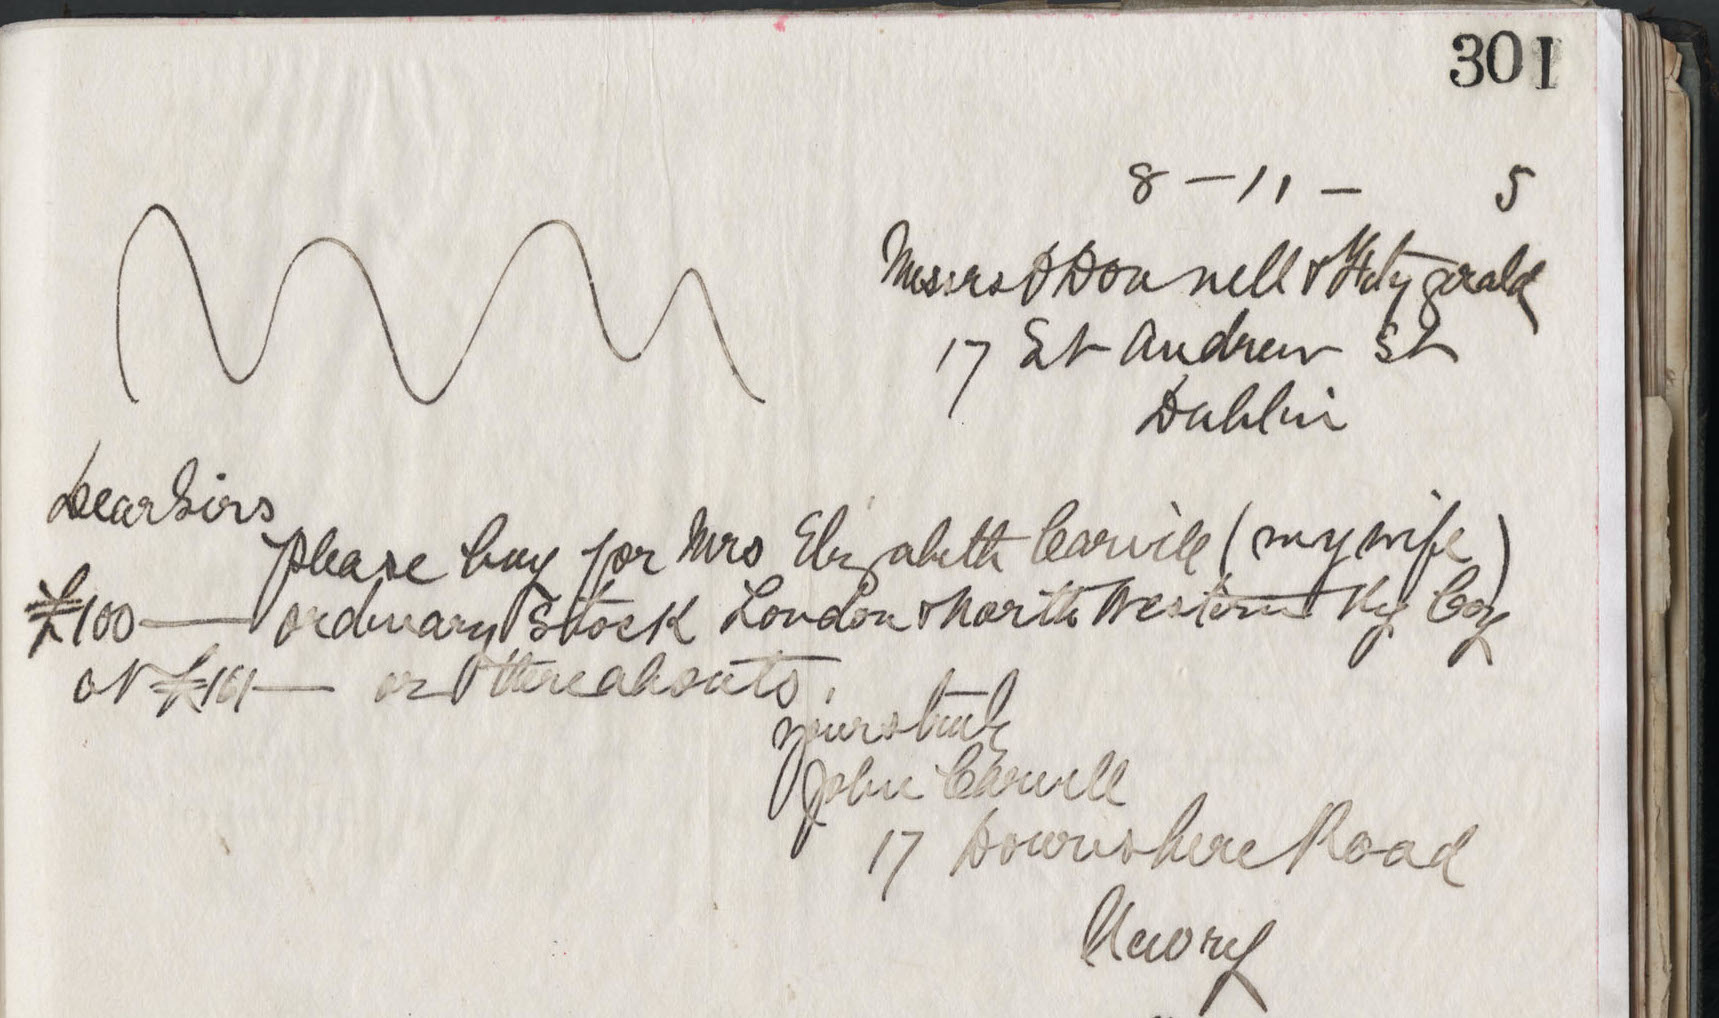 301
8 - 11 - 5
Messrs O'Donnell & Fitzgerald
17 St Andrew St
Dublin
Dear Sirs
please buy for Mrs Elizabeth Carvill (my wife)
£100 — ordinary Stock London & North Western Ry Coy
at £161 — or thereabouts.
yours truly
John Carvill
17 Downshire Road
Newry